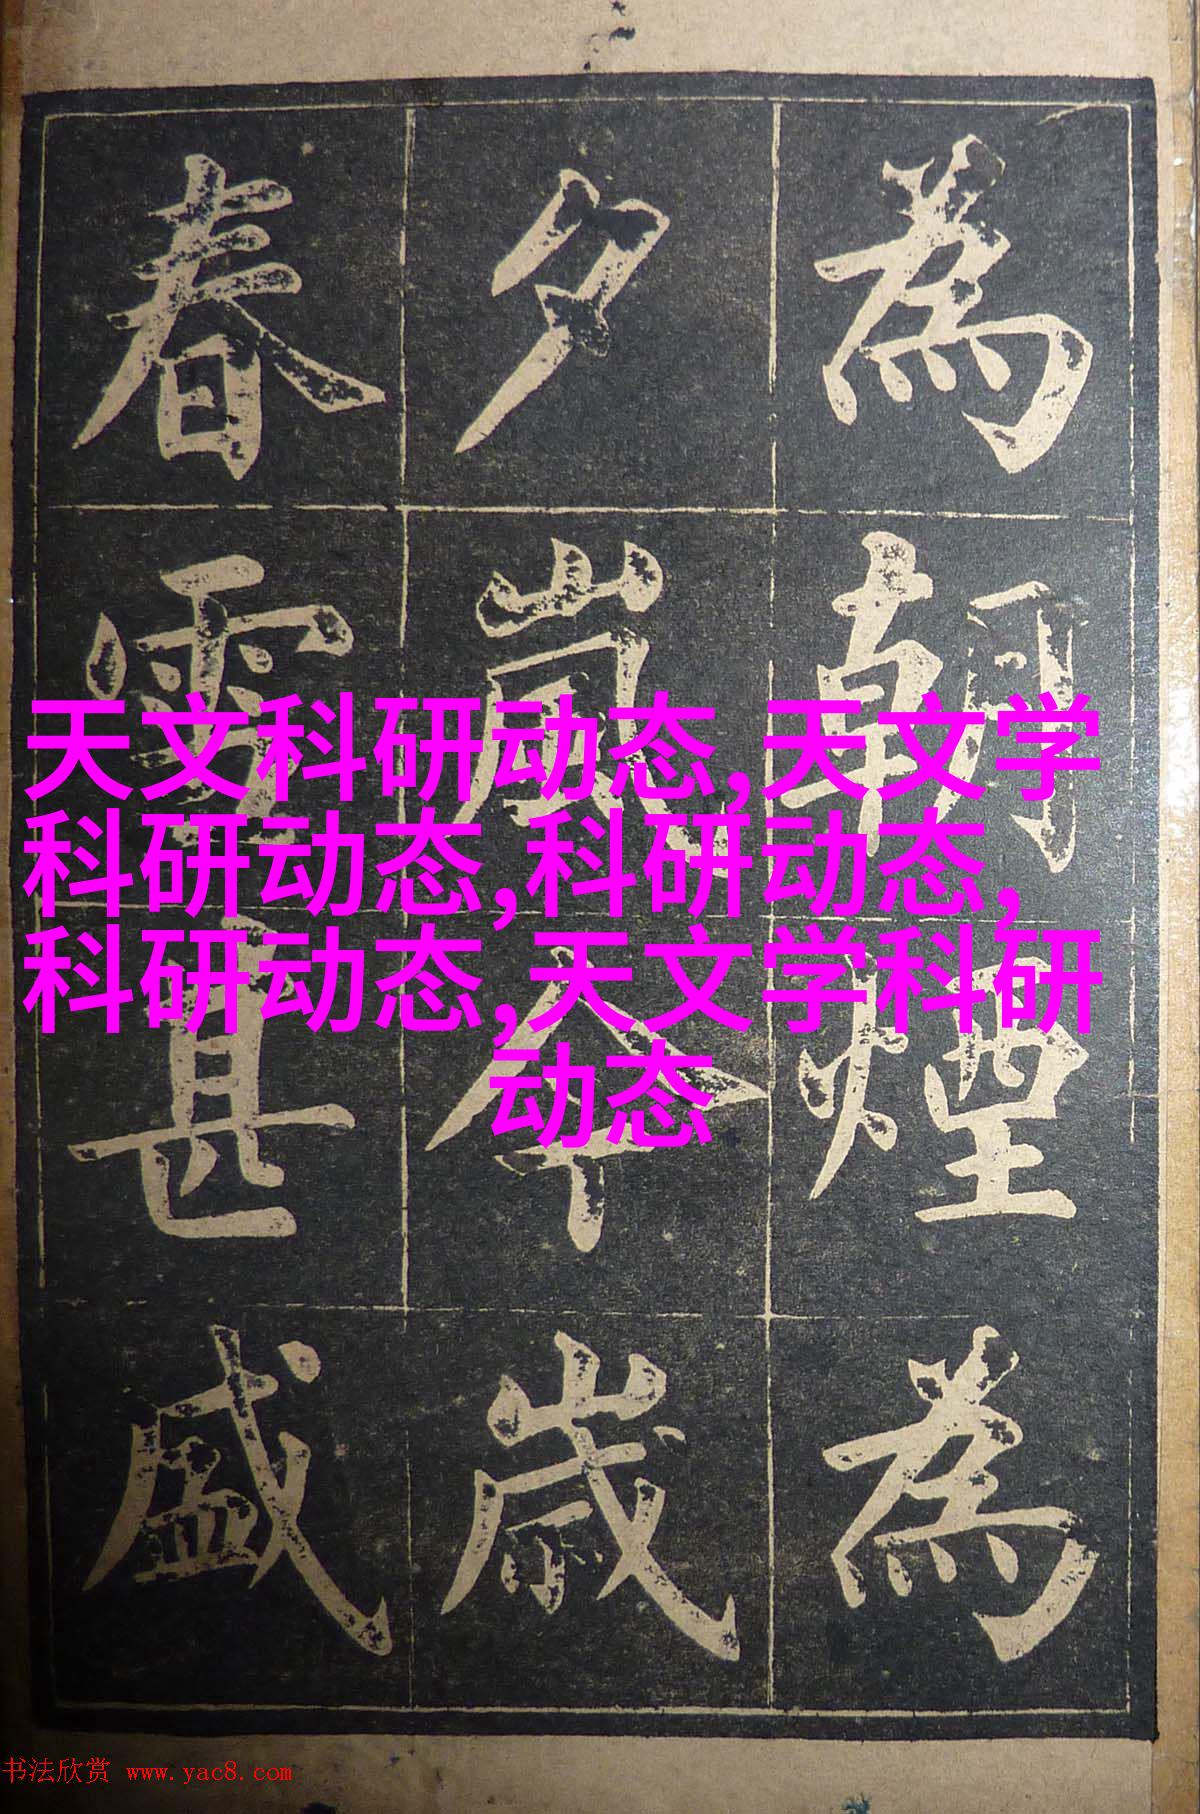 為朝煙為
夕嵐今歳
春雪甚盛
天文科研动态,天文学
科研动态,科研动态,
科研动态,天文学科研
动态
书法欣赏 www.yac8.com